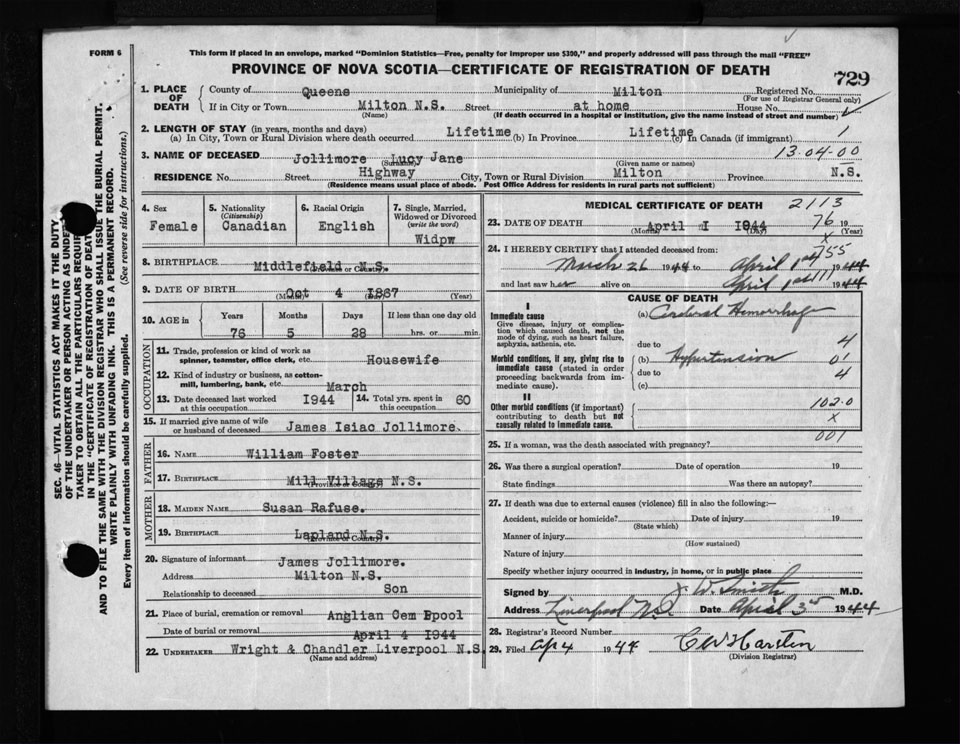 FORM 6
This form if placed in an envelope, marked "Dominion Statistics—Free, penalty for improper use $300," and properly addressed will pass through the mail "FREE"
PROVINCE OF NOVA SCOTIA—CERTIFICATE OF REGISTRATION OF DEATH
729
1. PLACE OF DEATH County of Queens Municipality of Milton Registered No.
(For use of Registrar General only)
If in City or Town Milton N.S. Street at home House No.
(Name) (If death occurred in a hospital or institution, give the name instead of street and number)
2. LENGTH OF STAY (in years, months and days)
(a) In City, Town or Rural Division where death occurred Lifetime (b) In Province Lifetime (c) In Canada (if immigrant) 1
13-04-00
3. NAME OF DECEASED Jollimore Lucy Jane
(Surname) (Given name or names)
RESIDENCE No. Street Highway City, Town or Rural Division Milton Province N.S.
(Residence means usual place of abode. Post Office Address for residents in rural parts not sufficient)
4. Sex Female
5. Nationality (Citizenship) Canadian
6. Racial Origin English
7. Single, Married, Widowed or Divorced (write the word) Widpw
8. BIRTHPLACE Middlefield N.S.
(Province or Country)
9. DATE OF BIRTH Oct 4 1867
(Month) (Day) (Year)
10. AGE in Years Months Days If less than one day old
76 5 28 hrs. or min.
OCCUPATION
11. Trade, profession or kind of work as spinner, teamster, office clerk, etc. Housewife
12. Kind of industry or business, as cotton-mill, lumbering, bank, etc.
13. Date deceased last worked at this occupation March 1944
14. Total yrs. spent in this occupation 60
15. If married give name of wife or husband of deceased James Isiac Jollimore.
FATHER
16. NAME William Foster
17. BIRTHPLACE Mill Village N.S.
(Province or Country)
MOTHER
18. MAIDEN NAME Susan Rafuse.
19. BIRTHPLACE Lapland N.S.
(Province or Country)
20. Signature of informant James Jollimore.
Address Milton N.S.
Relationship to deceased Son
21. Place of burial, cremation or removal Anglian Cem Bpool
Date of burial or removal April 4 1944
22. UNDERTAKER Wright & Chandler Liverpool N.S.
(Name and address)
MEDICAL CERTIFICATE OF DEATH
2113
76
23. DATE OF DEATH April I 1944
(Month) (Day) (Year)
19
x
755
24. I HEREBY CERTIFY that I attended deceased from:
March 26 1944 to April 1st 1944
and last saw her alive on April 1st 1944
CAUSE OF DEATH
I
Immediate cause
Give disease, injury or complication which caused death, not the mode of dying, such as heart failure, asphyxia, asthenia, etc.
(a) Cerebral Hemorrhage
due to 4
Morbid conditions, if any, giving rise to immediate cause (stated in order proceeding backwards from immediate cause).
(b) Hypertension 0'
due to 4
(c)
II
Other morbid conditions (if important) contributing to death but not causally related to immediate cause.
102.0
x
001
25. If a woman, was the death associated with pregnancy?
26. Was there a surgical operation? Date of operation 19
State findings Was there an autopsy?
27. If death was due to external causes (violence) fill in also the following:—
Accident, suicide or homicide? Date of injury 19
(State which)
Manner of injury
(How sustained)
Nature of injury
Specify whether injury occurred in industry, in home, or in public place
Signed by W. Smith M.D.
Address Liverpool N.S. Date April 3rd 1944
28. Registrar's Record Number
29. Filed Apr 4 1944
(Division Registrar)
SEC. 46—VITAL STATISTICS ACT MAKES IT THE DUTY
OF THE UNDERTAKER OR PERSON ACTING AS UNDER
TAKER TO OBTAIN ALL THE PARTICULARS REQUIR
IN THE "CERTIFICATE OF REGISTRATION OF DEAT
AND TO FILE THE SAME WITH THE DIVISION REGISTRAR WHO SHALL ISSUE THE BURIAL PERMIT.
WRITE PLAINLY WITH UNFADING INK. THIS IS A PERMANENT RECORD.
Every item of information should be carefully supplied. (See reverse side for instructions.)